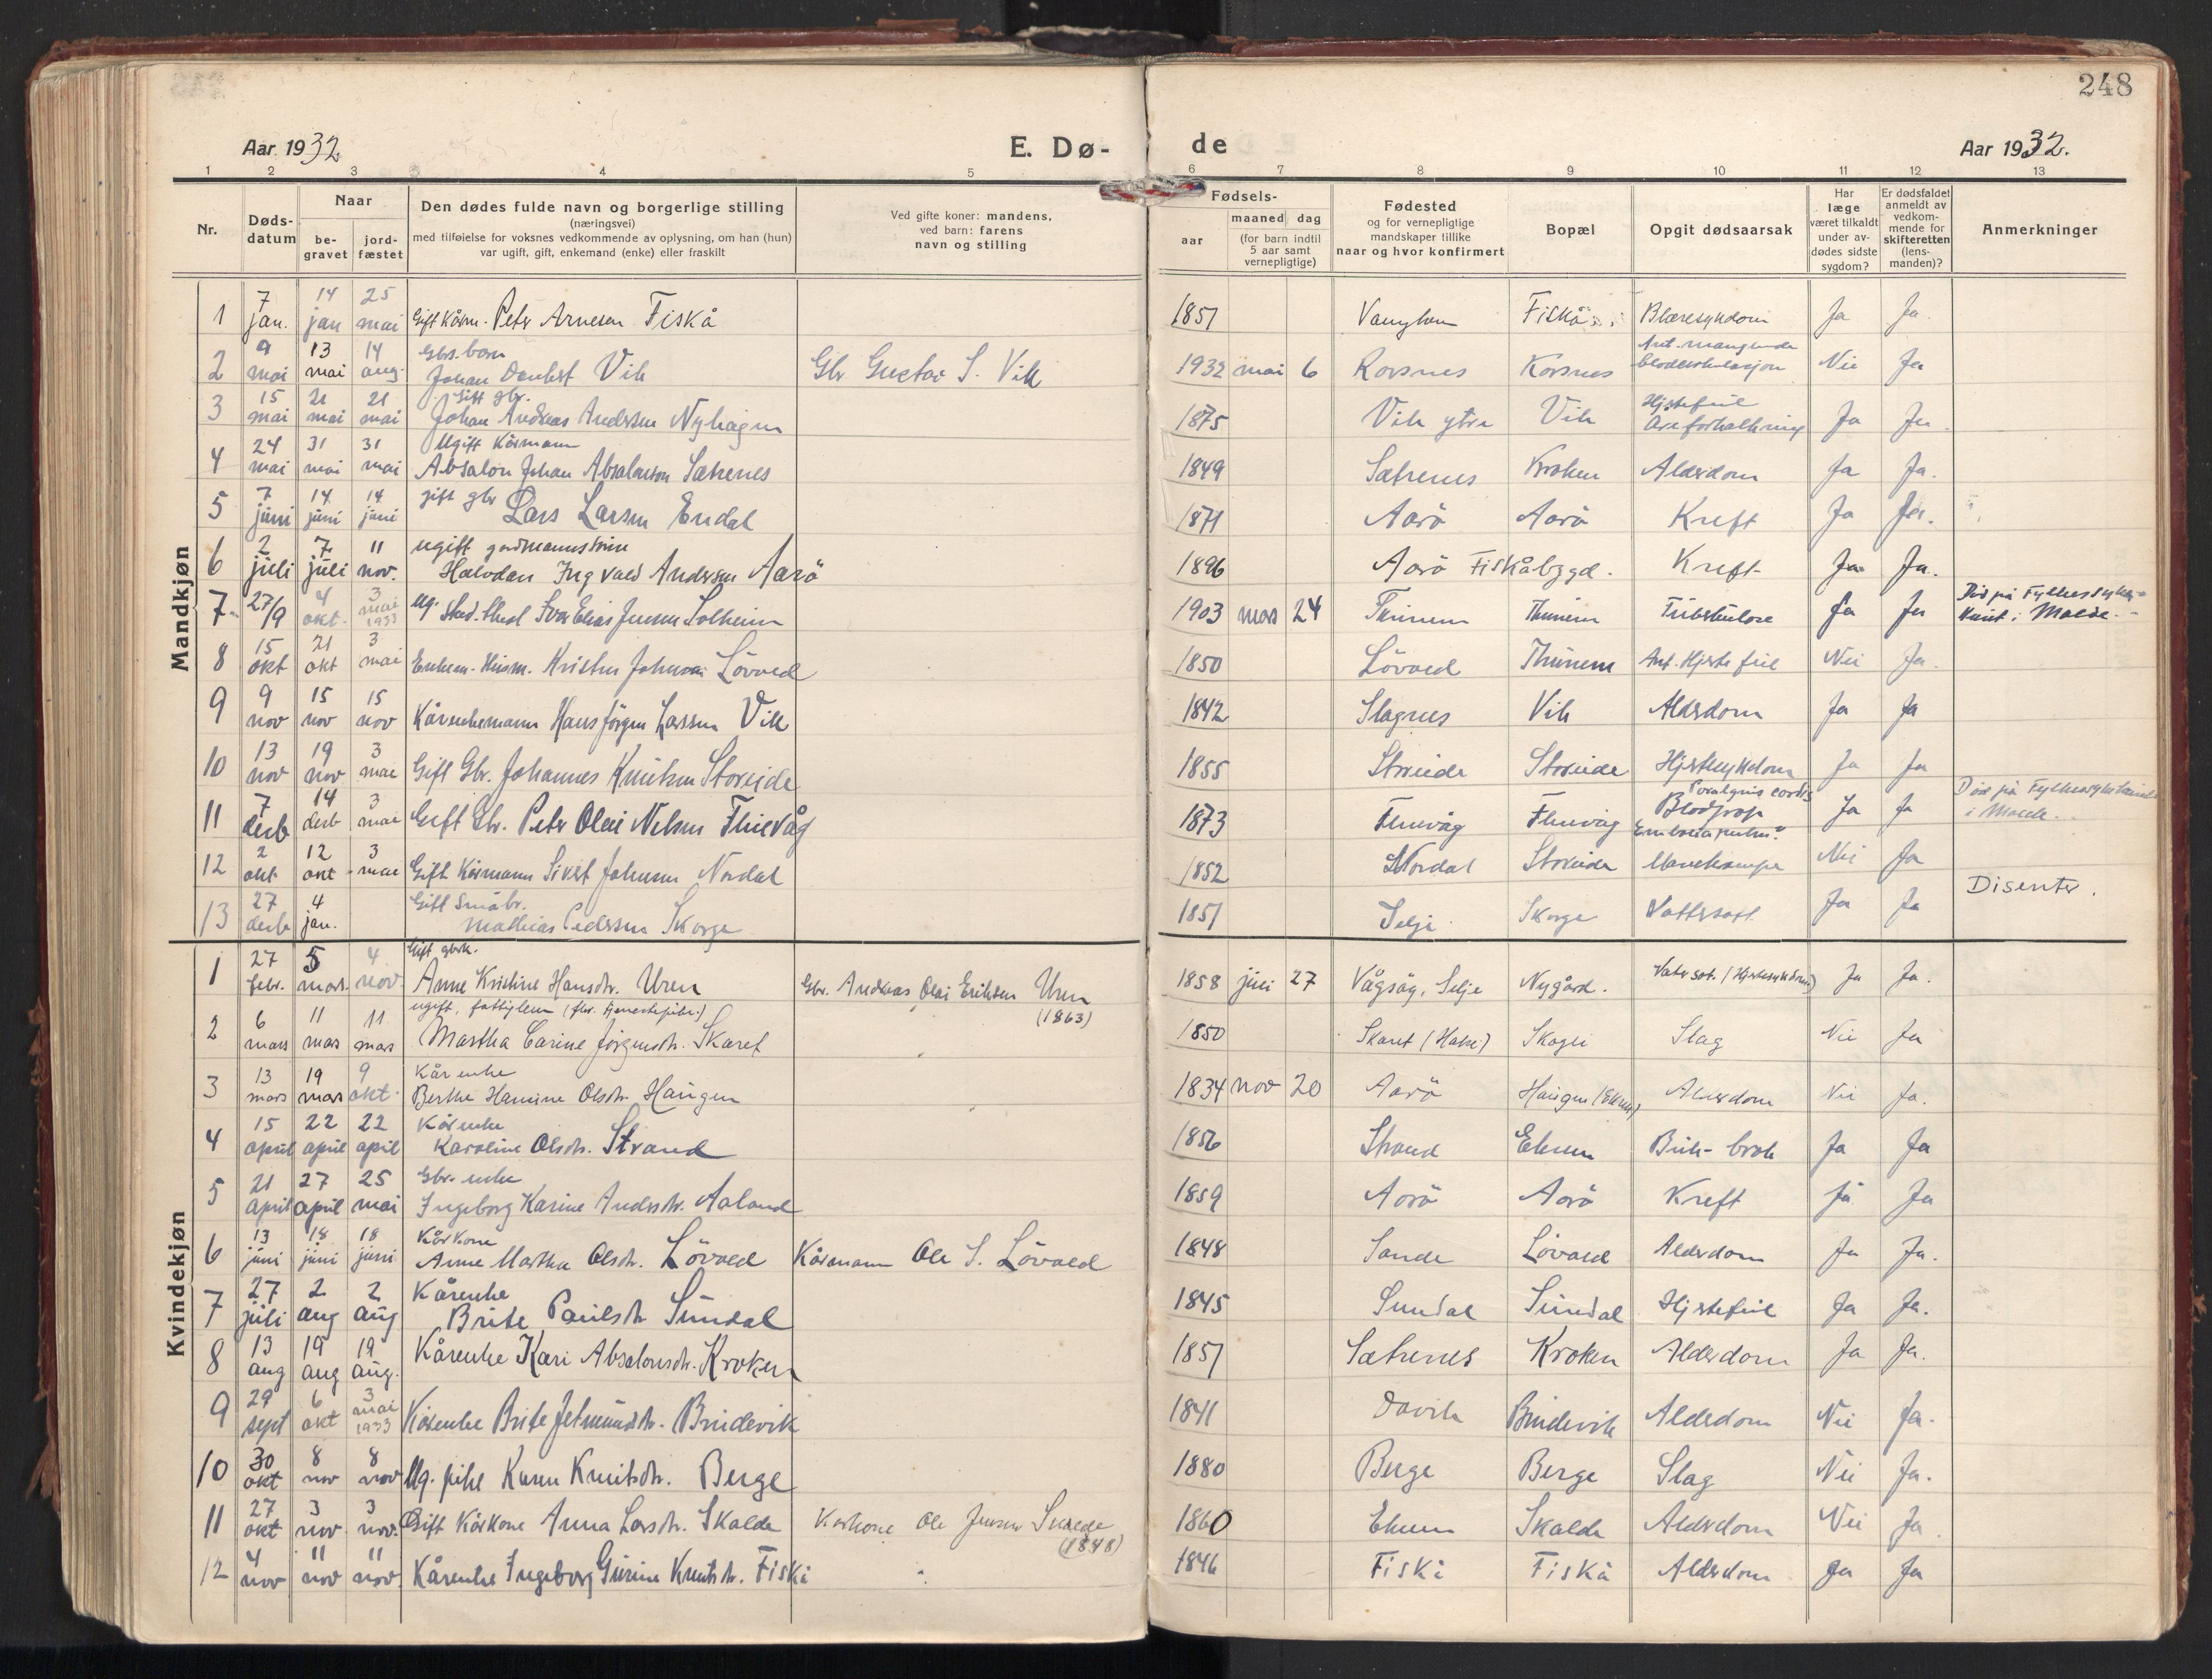 248
Aar 1932
E. Dø-
de
Aar 1932.
1 2 3 4 5 6 7 8 9 10 11 12 13
Nr.
Døds-
datum
Naar
be-
gravet
jord-
fæstet
Den dødes fulde navn og borgerlige stilling
(næringsvei)
med tilføielse for voksnes vedkommende av oplysning, om han (hun)
var ugift, gift, enkemand (enke) eller fraskilt
Ved gifte koner: mandens,
ved barn: farens
navn og stilling
Fødsels-
aar
maaned dag
(for barn indtil
5 aar samt
vernepligtige)
Fødested
og for vernepligtige
mandskaper tillike
naar og hvor konfirmert
Bopæl
Opgit dødsaarsak
Har
læge
været tilkaldt
under av-
dødes sidste
sygdom?
Er dødsfaldet
anmeldt av
vedkom-
mende for
skifteretten
(lens-
manden)?
Anmerkninger
Mandkjøn
1 7 jan. 14 jan 25 mai Gift Kårm. Peter Arnesen Fiskå 1851 Fiskå Blæresykdom Ja Ja.
2 9 mai 13 mai 14 aug. Gbrs. barn Johan Vik Gbr Gustav S. Vik 1932 mai 6 Korsnes Korsnes Ant. manglende blodcirkulasjon Nei Ja
3 15 mai 21 mai 21 mai Gift gbr. Johan Andreas Andersen Nyhagen 1875 Vik ytre Vik Hjertefeil Åreforkalkning Ja Ja.
4 24 mai 31 mai 31 mai Ugift Kårmann Absalon Johan Absalonson Sætrenes 1849 Sætrenes Kroken Alderdom Ja Ja.
5 7 juni 14 juni 14 juni gift gbr Lars Larsen Endal 1871 Aarö Aarö Kreft Ja Ja.
6 2 juli 7 juli 11 nov. ugift gardmannssönn Halvdan Ingvald Andersen Aarö 1896 Aarö Fiskåbygd. Kreft Ja Ja.
7 27/9 4 okt. 3 mai 1933 Ug. Stud. Ivar Elias Jensen Solheim 1903 mars 24 Thunem Thunem Tuberkulose Ja Ja Död på Fylkessykehuset i Molde.
8 15 okt 21 okt 3 mai Enkem. Husm. Kristen Johnsen Lövold 1850 Lövold Thunem Ant. Hjertefeil Nei Ja.
9 9 nov 15 nov 15 nov Kårenkemann Hans Jörgen Larsen Vik 1842 Slagnes Vik Alderdom Ja Ja
10 13 nov 19 nov 3 mai Gift Gbr. Johannes Knutsen Storeide 1855 Storeide Storeide Hjertesykdom Ja Ja
11 7 desb 14 desb 3 mai Gift Gbr. Peter Olai Nilsen Flusvåg 1873 Flusvåg Flusvåg Blodprop Ja Ja Död på Fylkessykehuset i Molde.
12 2 okt 12 okt 3 mai Gift Kårmann Sivert Johnsen Nordal 1852 Nordal Storeide Mavekrampe Nei Ja
13 27 desb 4 jan. Gift Småbr. Mathias Pedersen Skorge 1851 Selje Skorge Vattersott Ja Ja Disenter.
Kvindekjøn
1 27 febr. 5 mars. 4 nov. Gift gbrk. Anne Kristine Hansdtr. Uren Gbr. Andreas Olai Eriksen Uren (1863) 1858 juni 27 Vågsåg, Selje Nygård. Vatersot. (Hjertesykdom) Ja Ja.
2 6 mars 11 mars 11 mars ugift, fattiglem (för. tjenestepike.) Martha Carine Jörgensdtr. Skaret 1850 Skaret Slag Nei Ja
3 13 mars 19 mars 9 okt. Kårenke Berthe Hansine Olsdtr. Haugen 1834 nov 20 Aarö Haugen (Eksem) Alderdom Nei Ja.
4 15 april 22 april 22 april Kårenke Karoline Olsdtr. Strand 1856 Strand Eksem Buk-brok Ja Ja
5 21 april 27 april 25 mai Gbr. enke Ingeborg Karine Andersdtr. Aaland 1859 Aarö Aarö Kreft Ja Ja
6 13 juni 18 juni 18 juni Kårkone Anne Martha Olsdtr. Lövold Kårmann Ole S. Lövold 1848 Sande Lövold Alderdom Ja Ja.
7 27 juli 2 aug 2 aug Kårenke Brite Paulsdtr Sundal 1845 Sundal Sundal Hjertefeil Ja Ja.
8 13 aug 19 aug 19 aug. Kårenke Kari Absalonsdtr. Kroken 1851 Sætrenes Kroken Alderdom Ja Ja.
9 29 sept 6 okt 3 mai 1933 Kårenke Brite Jetmundsdtr. Brudevik 1841 Davik Brudevik Alderdom Nei Ja.
10 30 okt 8 nov 8 nov Ug. pike Karen Knutsdtr. Berge 1880 Berge Berge Slag Nei Ja.
11 27 okt 3 nov. 3 nov. Gift Kårkone Anna Larsdtr. Skalde Ole Jensen (1848) 1860 Eksem Skalde Alderdom Nei Ja.
12 4 nov 11 nov 11 nov. Kårenke Ingeborg Gurine Knutsdtr. Fiskå 1846 Fiskå Fiskå Alderdom Ja Ja